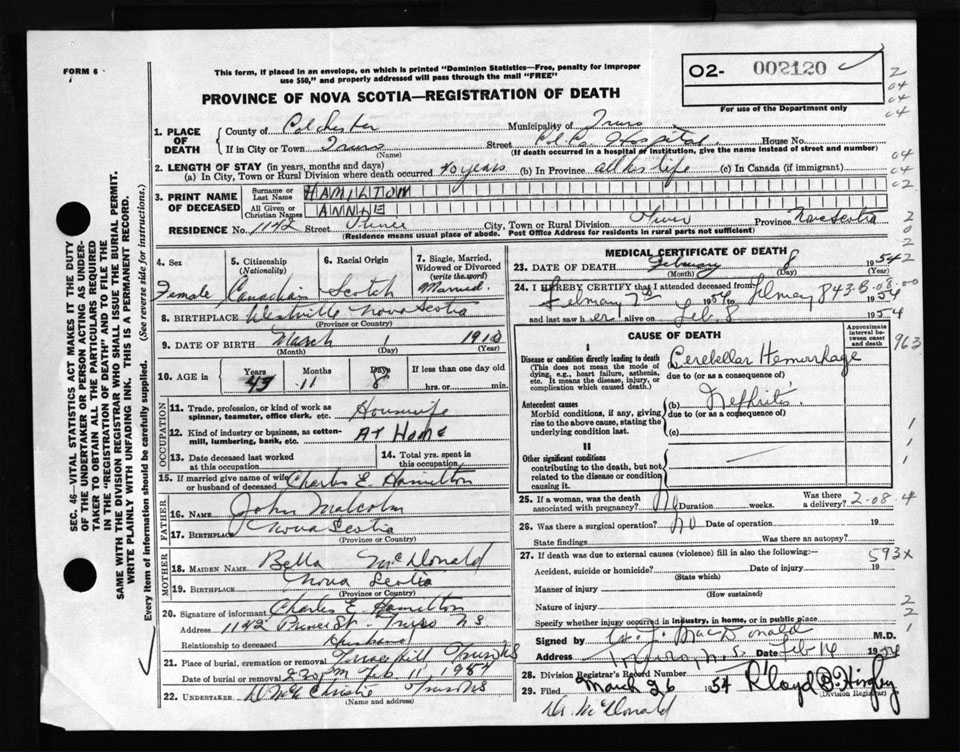 FORM 6
This form, if placed in an envelope, on which is printed "Dominion Statistics—Free, penalty for improper
use $50," and properly addressed will pass through the mail "FREE"
PROVINCE OF NOVA SCOTIA—REGISTRATION OF DEATH
O2- 002120
For use of the Department only
2
04
04
04
1. PLACE OF DEATH
County of Colchester Municipality of Truro
If in City or Town Truro Street Col. Co. Hospital House No.
(Name) (If death occurred in a hospital of institution, give the name instead of street and number)
2. LENGTH OF STAY (in years, months and days)
(a) In City, Town or Rural Division where death occurred 40 years (b) In Province all his life (c) In Canada (if immigrant)
04
04
02
3. PRINT NAME OF DECEASED
Surname or Last Name HAMILTON
All Given or Christian Names ANNIE
RESIDENCE No. 1142 Street Prince City, Town or Rural Division Truro Province Nova Scotia
(Residence means usual place of abode. Post Office Address for residents in rural parts not sufficient)
2
0
2
SEC. 46—VITAL STATISTICS ACT MAKES IT THE DUTY
OF THE UNDERTAKER OR PERSON ACTING AS UNDER-
TAKER TO OBTAIN ALL THE PARTICULARS REQUIRED
IN THE "REGISTRATION OF DEATH" AND TO FILE THE
SAME WITH THE DIVISION REGISTRAR WHO SHALL ISSUE THE BURIAL PERMIT.
WRITE PLAINLY WITH UNFADING INK. THIS IS A PERMANENT RECORD.
Every item of information should be carefully supplied. (See reverse side for instructions.)
4. Sex Female
5. Citizenship (Nationality) Canadian
6. Racial Origin Scotch
7. Single, Married, Widowed or Divorced (write the word) Married.
8. BIRTHPLACE Westville Nova Scotia
(Province or Country)
9. DATE OF BIRTH March 1 1910
(Month) (Day) (Year)
10. AGE in Years 43 Months 11 Days 8 If less than one day old
hrs. or min.
OCCUPATION
11. Trade, profession, or kind of work as
spinner, teamster, office clerk, etc. Housewife
12. Kind of industry or business, as cotton-
mill, lumbering, bank, etc. AT Home
13. Date deceased last worked
at this occupation
14. Total yrs. spent in
this occupation
15. If married give name of wife
or husband of deceased Charles E Hamilton
FATHER
16. NAME John Malcolm
17. BIRTHPLACE Nova Scotia
(Province or Country)
MOTHER
18. MAIDEN NAME Bella McDonald
19. BIRTHPLACE Nova Scotia
(Province or Country)
20. Signature of informant Charles E. Hamilton
Address 1142 Prince St - Truro NS
Relationship to deceased Husband
21. Place of burial, cremation or removal Terrace Hill Truro NS
Date of burial or removal 2.30 PM Feb. 11, 1954
22. UNDERTAKER Christie Truro NS
(Name and address)
MEDICAL CERTIFICATE OF DEATH
23. DATE OF DEATH February 8 1954
(Month) (Day) (Year)
24. I HEREBY CERTIFY that I attended deceased from
February 7th 1954 to February 8 1954
and last saw her alive on Feb. 8 1954
CAUSE OF DEATH
Approximate interval between onset and death
963
I
Disease or condition directly leading to death
(This does not mean the mode of
dying, e.g., heart failure, asthenia,
etc. It means the disease, injury, or
complication which caused death.)
Cerebellar Hemorrhage
due to (or as a consequence of)
Antecedent causes
Morbid conditions, if any, giving
rise to the above cause, stating the
underlying condition last.
(b) Nephritis.
due to (or as a consequence of)
(c)
II
Other significant conditions
contributing to the death, but not
related to the disease or condition
causing it.
25. If a woman, was the death
associated with pregnancy? No Duration weeks. Was there a delivery?
2-08-4
26. Was there a surgical operation? No Date of operation 19
State findings Was there an autopsy?
27. If death was due to external causes (violence) fill in also the following:—
593x
Accident, suicide or homicide? Date of injury 19
(State which)
Manner of injury
(How sustained)
Nature of injury
Specify whether injury occurred in industry, in home, or in public place
Signed by MacDonald M.D.
Address Truro, N.S. Date Feb 16 1954
28. Division Registrar's Record Number
29. Filed March 26 1954 Lloyd Hingley
(Division Registrar)
Dr. McDonald